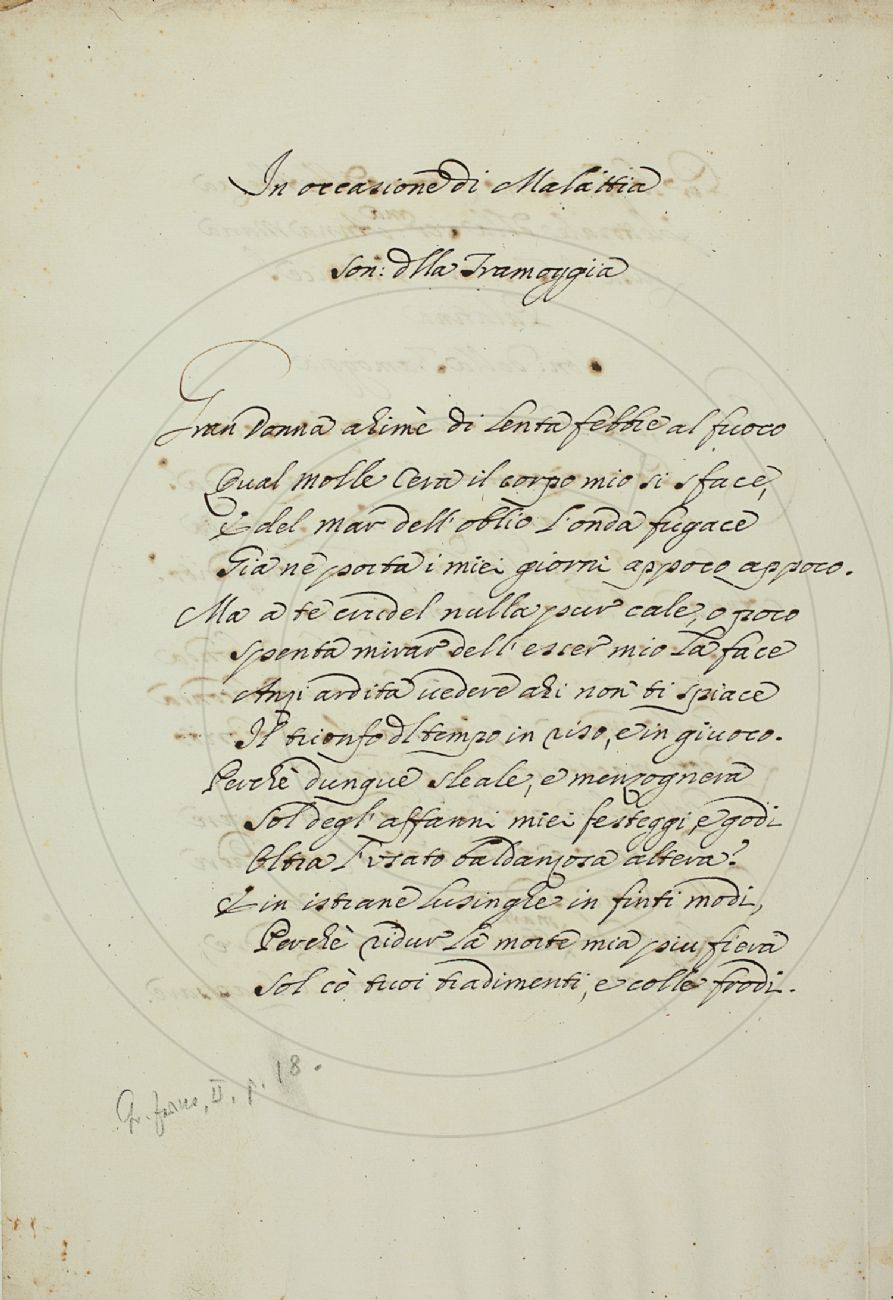 In occasione di Malattia
Son: dlla Tramoggia
Gran Donna ahimè di lenta febbre al fuoco
Qual molle Cera il corpo mio si sface,
E del mar dell'oblio l'onda fugace
Gia ne porta i miei giorni appoco appoco.
Ma a te crudel nulla pur cale, o poco
Spenta mirar dell'esser mio la face
Anzi ardita vedere ahi non ti spiace
Il trionfo dl tempo in riso, e in giuoco.
Perchè dunque sleale, e menzognera
Sol degl'affanni miei festeggi, e godi
Oltra l'usato baldanzosa altera?
E in istrane lusinghe in finti modi,
Perchè ridur la morte mia piu fiera
Sol cò tuoi tradimenti, e colle frodi.
II. p. 18.